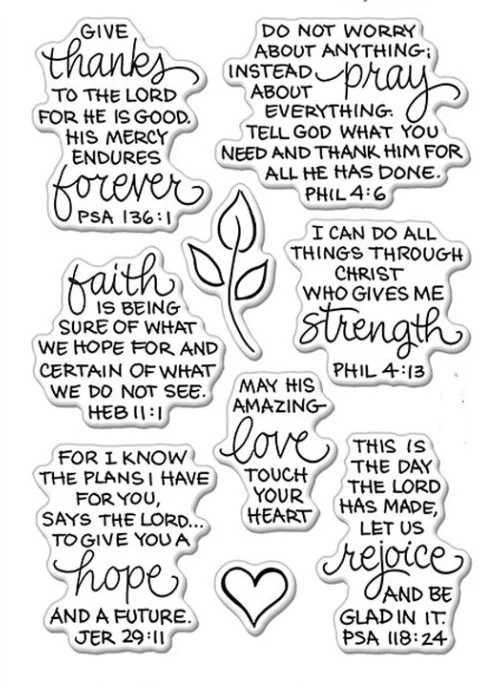 GIVE
thanks
TO THE LORD
FOR HE IS GOOD.
HIS MERCY
ENDURES
forever
PSA 136:1
DO NOT WORRY
ABOUT ANYTHING;
INSTEAD pray
ABOUT
EVERYTHING.
TELL GOD WHAT YOU
NEED AND THANK HIM FOR
ALL HE HAS DONE.
PHIL 4:6
I CAN DO ALL
THINGS THROUGH
CHRIST
WHO GIVES ME
strength
PHIL 4:13
faith
IS BEING
SURE OF WHAT
WE HOPE FOR AND
CERTAIN OF WHAT
WE DO NOT SEE.
HEB 11:1
MAY HIS
AMAZING
love
TOUCH
YOUR
HEART
FOR I KNOW
THE PLANS I HAVE
FOR YOU,
SAYS THE LORD...
TO GIVE YOU A
hope
AND A FUTURE.
JER 29:11
THIS IS
THE DAY
THE LORD
HAS MADE,
LET US
rejoice
AND BE
GLAD IN IT.
PSA 118:24